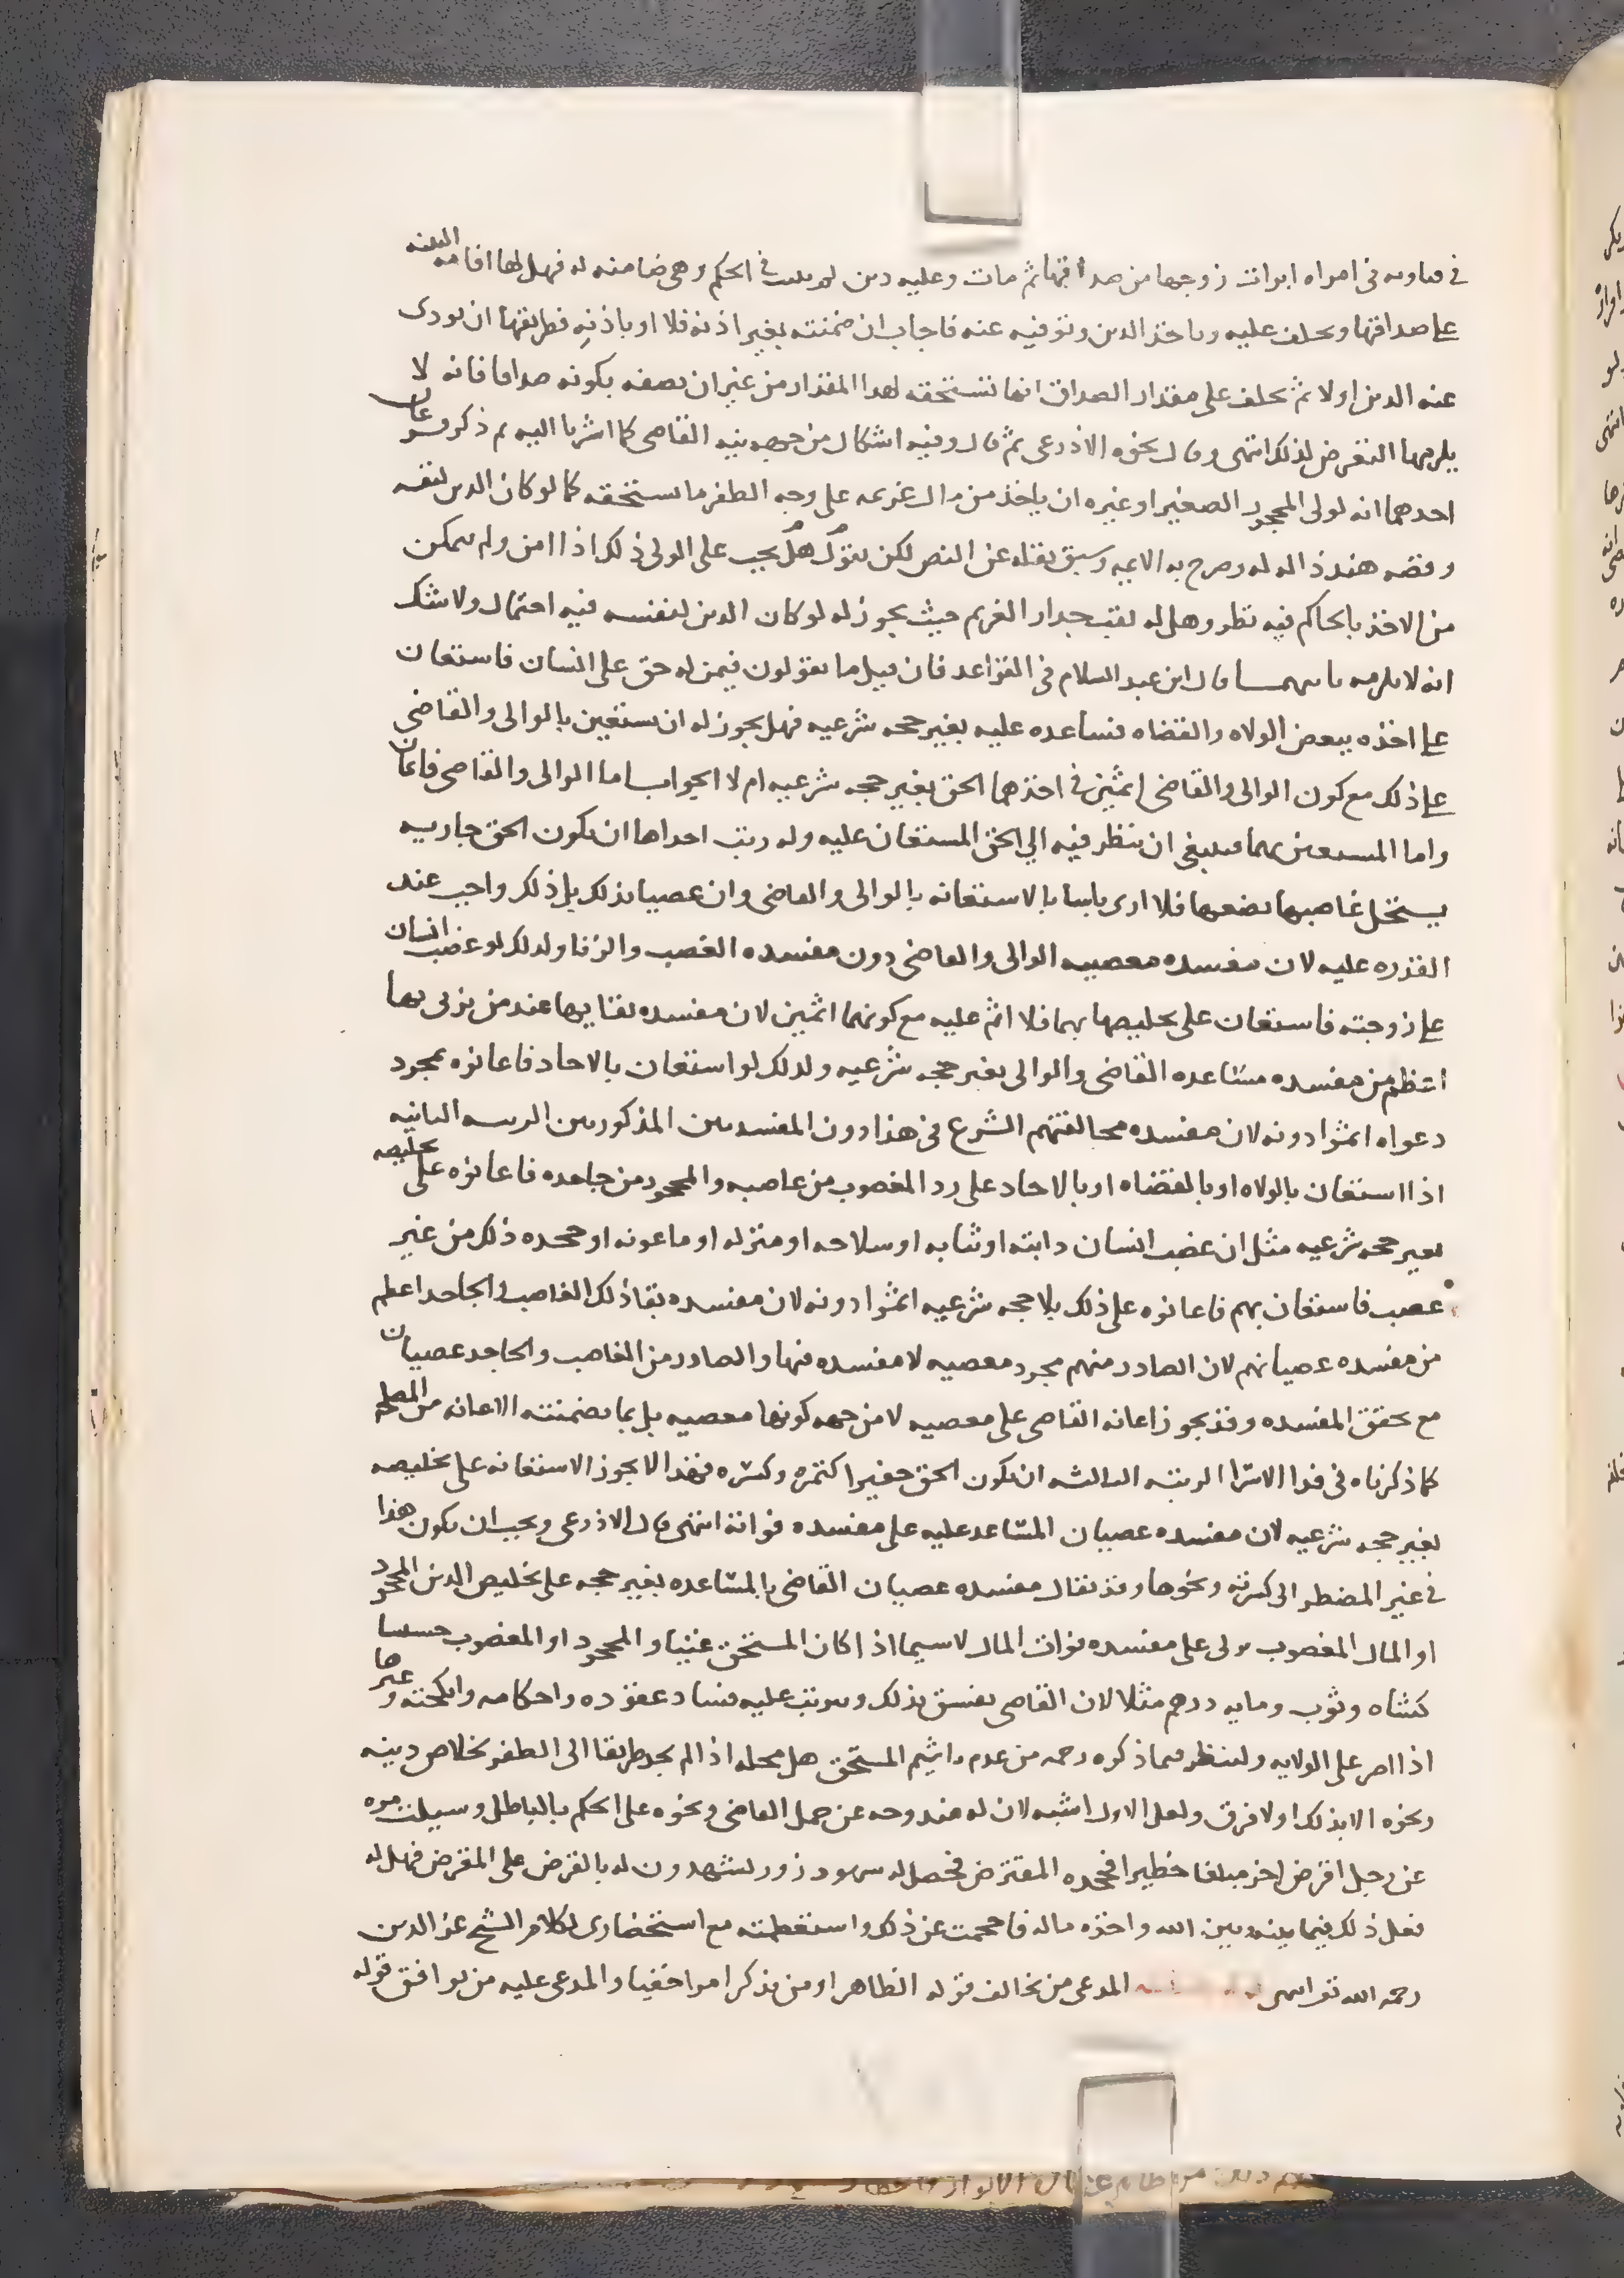 في فتاويه في امراه ابرات زوجها من صداقها ثم مات وعليه دين لم يثبت في الحكم وهي ضامنه له فهل لها اقامه البينه
على صداقها ويحلف عليه وياخذ الدين وتوفيه عنه فاجاب ان ضمنته بغير اذنه فلا او باذنه فطريقها ان يودى
عنه الدين اولا ثم يحلف على مقدار الصداق انها تستحقه لهدا المقدار من غير ان يصفه بكونه صداقا فانه لا
يلزمها التعرض لذلك انتهى وقال بحوه الاذرعى ثم قال وفيه اشكال من جهه نيه القاضى كما اشرنا اليه ثم ذكر فرعان
احدهما انه لولى المحجور الصغير او غيره ان ياخذ من مال غريمه على وجه الظفر ما يستحقه كما لو كان الدين لنفسه
وقصه هند ذاله له وصرح به الايمه وسبق نقله عن النص لكن نقول هل يجب على الولى ذلك اذا امن ولم يتمكن
من الاخذ بالحاكم فيه نظر وهل له نقب جدار الغريم حيث يجوز له لو كان الدين لنفسه فيه احتمال ولا شك
انه لا يلزمه ثانيهمـــا قال ابن عبد السلام في القواعد فان قيل ما تقولون فيمن له حق على انسان فاستعان
على اخذه ببعض الولاه والقضاه فساعده عليه بغير حجه شرعيه فهل يجوز له ان يستعين بالوالى والقاضى
على ذلك مع كون الوالى والقاضى اثمين في اخذهما الحق بغير حجه شرعيه ام لا الجواب اما الوالى والقاضى فاثمان
واما المستعين بهما فينبغى ان ينظر فيه الي الحق المستعان عليه وله رتب احداها ان يكون الحق جاريه
يستحل غاصبها بضعها فلا ارى باسا بالاستعانه بالوالى والقاضى وان عصيا بذلك بل ذلك واجب عند
القدره عليه لان مفسده معصيه الوالى والقاضى دون مفسده الغصب والزنا ولدلك لو غصب انسان
على زوجته فاستعان على تخليصها بهما فلا اثم عليه مع كونهما اثمين لان مفسده بقايها عند من يزنى بها
اعظم من مفسده مساعده القاضى والوالى بغير حجه شرعيه ولدلك لو استعان بالاحاد فاعانوه بمجرد
دعواه اثموا دونه لان مفسده مخالفتهم الشرع في هذا دون المفسدتين المذكورتين الرتبه الثانيه
اذا استعان بالولاه او بالقضاه او بالاحاد على رد المغصوب من غاصبه والمجحود من جاحده فاعانوه على تخليصه
بغير حجه شرعيه مثل ان غصب انسان دابته او ثيابه او سلاحه او منزله او ماعونه او جحده ذلك من غير
غصب فاستعان بهم فاعانوه على ذلك بلا حجه شرعيه اثموا دونه لان مفسده بقا ذلك الغاصب والجاحد اعظم
من مفسده عصيانهم لان الصادر منهم مجرد معصيه لا مفسده فيها والصادر من الغاصب والجاحد عصيان
مع تحقق المفسده وقد يجوز اعانه القاضى على معصيه لا من جهه كونها معصيه بل بما تضمنته الاعانه من المصلحه
كما ذكرناه في فدا الاسرا الرتبه الثالثه ان يكون الحق حقيرا كتمره وكسره فهذا لا يجوز الاستعانه على تخليصه
بغير حجه شرعيه لان مفسده عصيان المساعد عليه على مفسده فواته انتهى قال الاذرعى ويجب ان يكون هذا
في غير المضطر الى كسرته ونحوها وقد يقال مفسده عصيان القاضى بالمساعده بغير حجه على تخليص الدين المجحود
او المال المغصوب تربى على مفسده فوات المال لاسيما اذا كان المستحق غنيا والمجحود او المغصوب خسيسا
كشاه وثوب ومايه درهم مثلا لان القاضى يفسق بذلك ويترتب عليه فساد عقوده واحكامه وانكحته وغيرها
اذا اصر على الولايه ولينظر فيما ذكره رحمه من عدم تاثيم المستحق هل محله اذا لم يجد طريقا الى الظفر بخلاص دينه
ونحوه الا بذلك او لا فرق ولعل الاول اشبه لان له مندوحه عن حمل القاضى ونحوه على الحكم بالباطل وسيلت مره
عن رجل اقرض اخر مبلغا خطيرا فجحده المقترض فحصل له شهود زور ليشهدون له بالقرض على المقرض فهل له
فعل ذلك فيما بينه وبين الله واخذه ماله فاحجمت عن ذلك واستفظعته مع استحضارى لكلام الشيخ عز الدين
رحمه الله تع انتهى المدعى من تخالف قوله الظاهر او من يذكر امرا خفيا والمدعى عليه من يوافق قوله